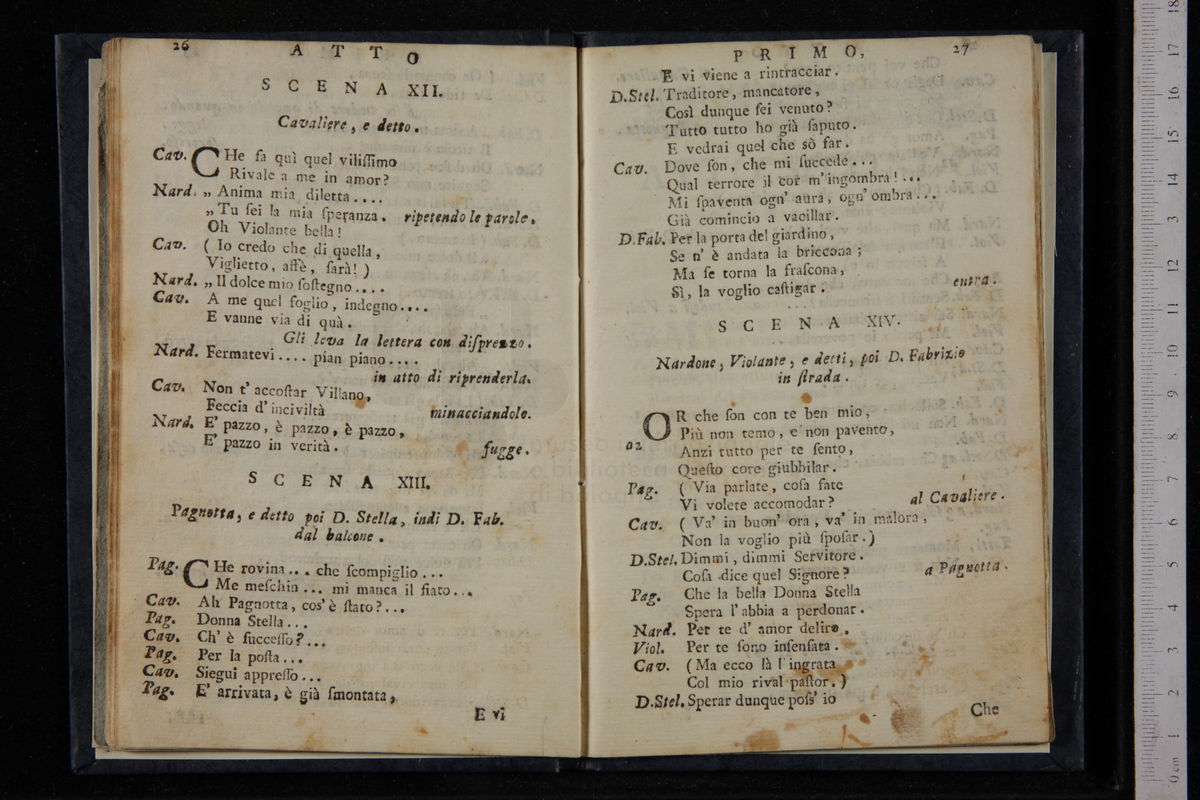 26
A T T O
S C E N A XII.
Cavaliere, e detto.
Cav. CHe fa quì quel viliſſimo
Rivale a me in amor?
Nard. „ Anima mia diletta....
„ Tu ſei la mia ſperanza. ripetendo le parole.
Oh Violante bella!
Cav. ( Io credo che di quella,
Viglietto, affè, ſarà! )
Nard. „ Il dolce mio ſoſtegno....
Cav. A me quel foglio, indegno....
E vanne via di quà.
Gli leva la lettera con diſprezzo.
Nard. Fermatevi.... pian piano....
in atto di riprenderla.
Cav. Non t' accoſtar Villano,
Feccia d' inciviltà minacciandolo.
Nard. E' pazzo, è pazzo, è pazzo,
E' pazzo in verità. fugge.
S C E N A XIII.
Pagnotta, e detto poi D. Stella, indi D. Fab.
dal balcone.
Pag. CHe rovina... che ſcompiglio...
Me meſchin... mi manca il fiato...
Cav. Ah Pagnotta, cos' è ſtato?...
Pag. Donna Stella...
Cav. Ch' è ſucceſſo?...
Pag. Per la poſta...
Cav. Siegui appreſſo...
Pag. E' arrivata, è già ſmontata,
E vi
P R I M O, 27
E vi viene a rintracciar.
D.Stel. Traditore, mancatore,
Così dunque ſei venuto?
Tutto tutto ho già ſaputo.
E vedrai quel che sò far.
Cav. Dove ſon, che mi ſuccede...
Qual terrore il cor m'ingombra!...
Mi ſpaventa ogn' aura, ogn' ombra...
Già comincio a vacillar.
D.Fab. Per la porta del giardino,
Se n' è andata la briccona;
Ma ſe torna la fraſcona,
Sì, la voglio caſtigar. entra.
S C E N A XIV.
Nardone, Violante, e detti, poi D. Fabrizio
in ſtrada.
OR che ſon con te ben mio,
Più non temo, e non pavento,
a2 Anzi tutto per te ſento,
Queſto core giubbilar.
Pag. ( Via parlate, coſa fate
Vi volete accomodar? al Cavaliere.
Cav. ( Va' in buon' ora, va' in malora,
Non la voglio più ſpoſar.)
D.Stel. Dimmi, dimmi Servitore.
Coſa dice quel Signore? a Pagnotta.
Pag. Che la bella Donna Stella
Spera l' abbia a perdonar.
Nard. Per te d' amor deliro.
Viol. Per te ſono inſenſata.
Cav. (Ma ecco là l' ingrata
Col mio rival paſtor.)
D.Stel. Sperar dunque poſs' io
Che